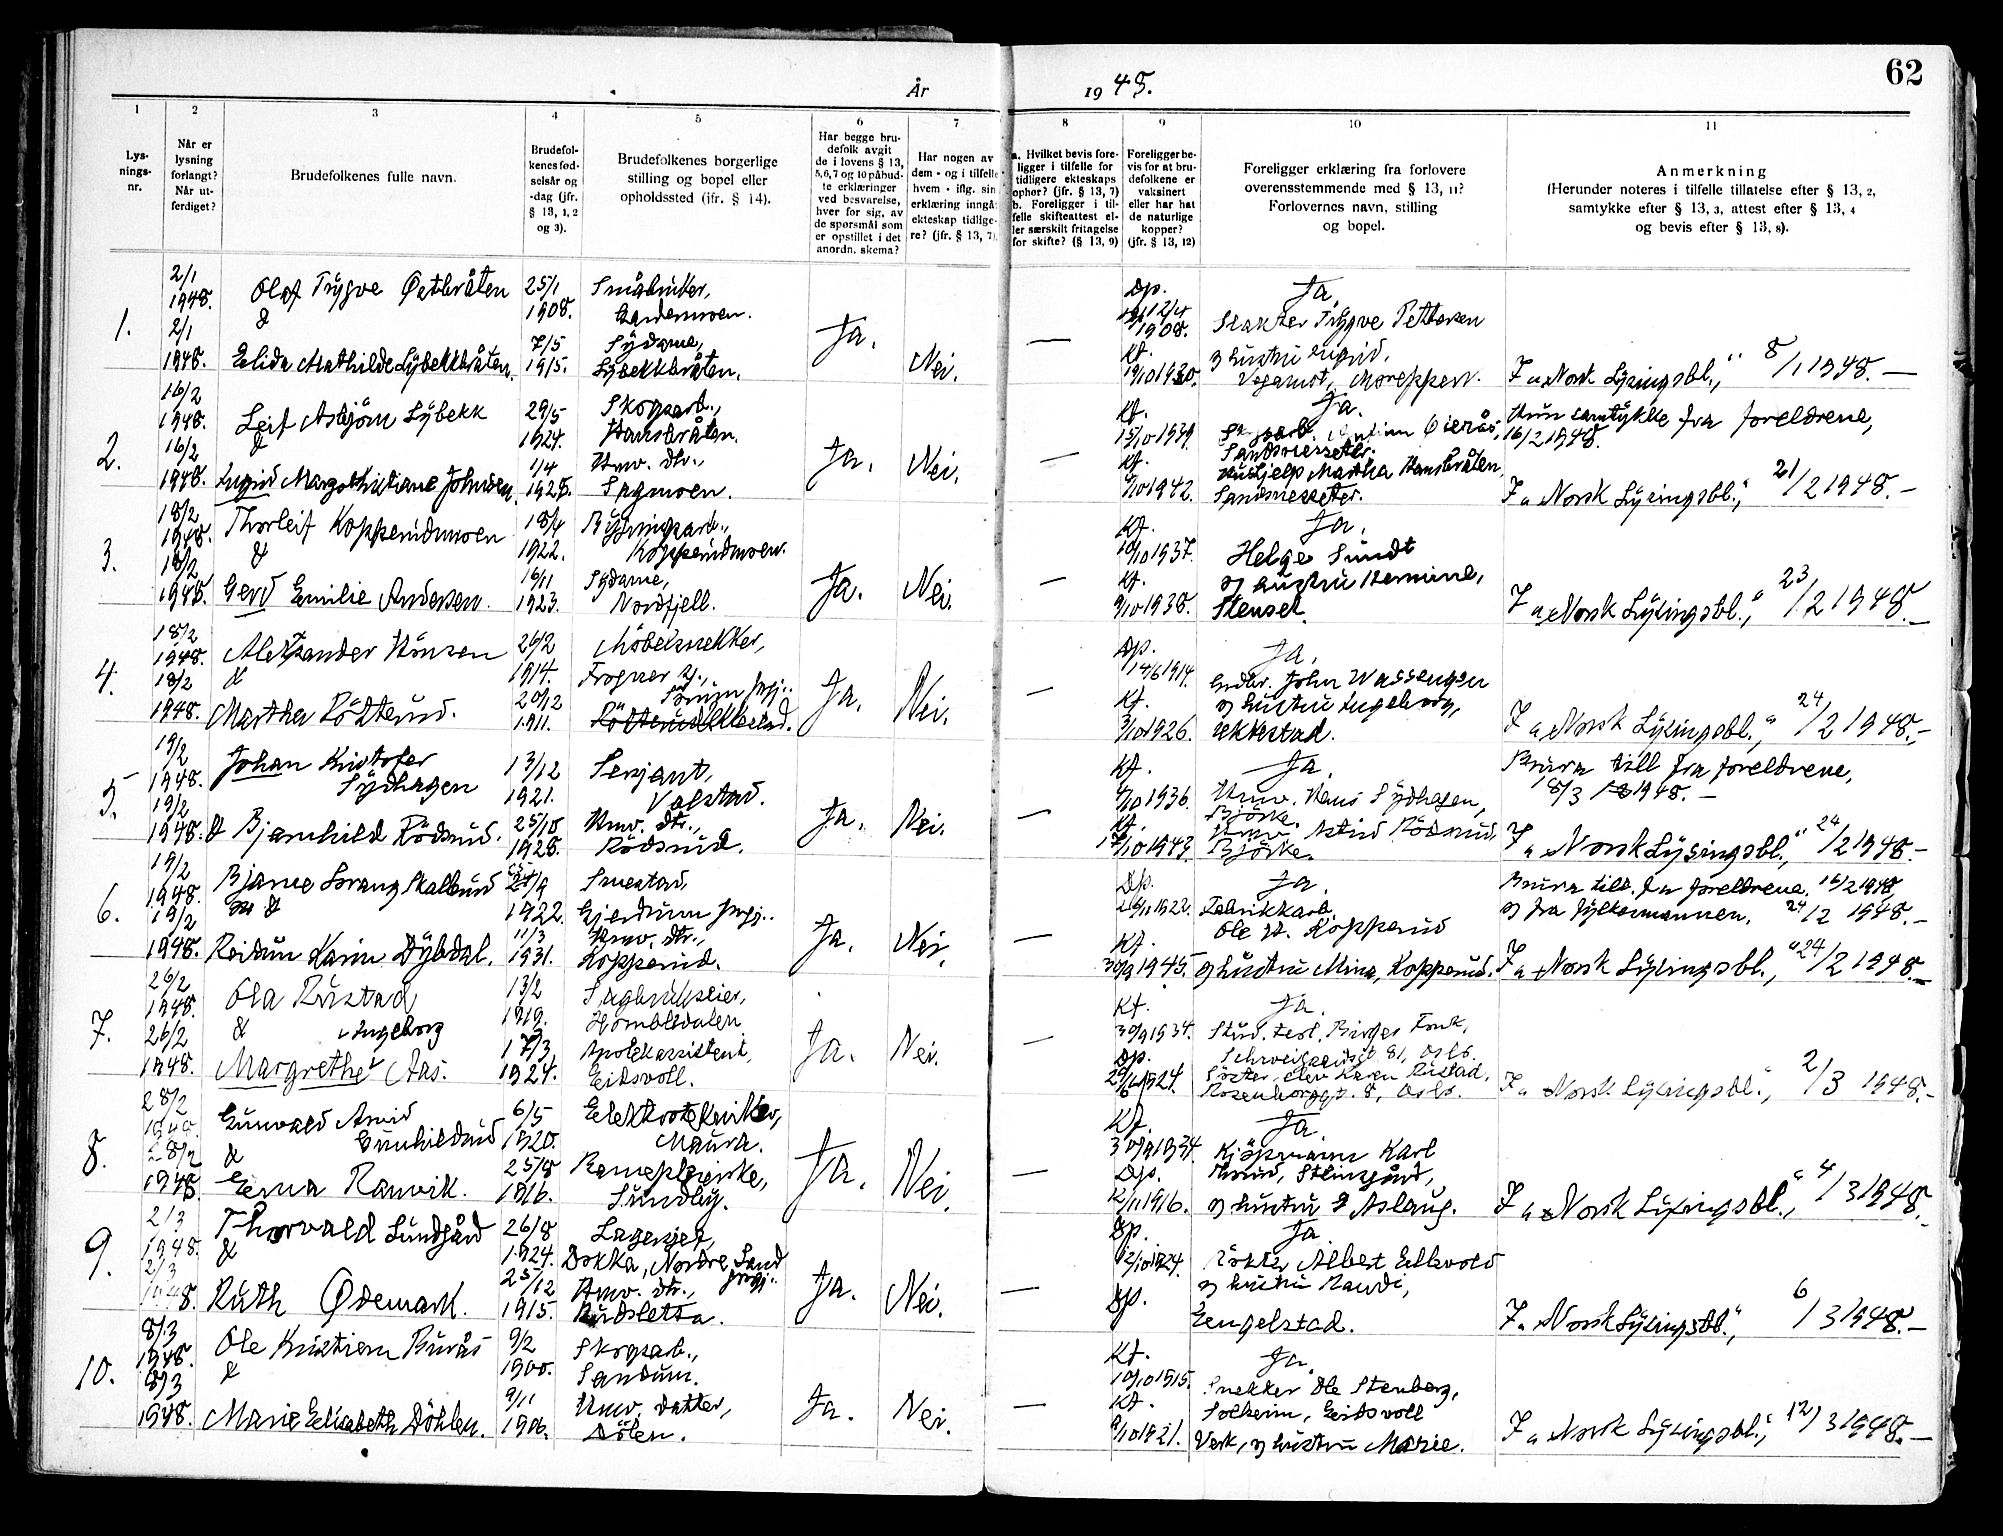 62
År 1948.
1
2
3
4
5
6
7
8
9
10
11
Lys-
nings-
nr.
Når er
lysning
forlangt?
Når ut-
ferdiget?
Brudefolkenes fulle navn.
Brudefol-
kenes fød-
selsår og
-dag (jfr.
§ 13, 1, 2
og 3).
Brudefolkenes borgerlige
stilling og bopel eller
opholdssted (jfr. § 14).
Har begge bru-
defolk avgit
de i lovens § 13,
5,6,7 og 10 påbud-
te erklæringer
ved besvarelse,
hver for sig, av
de spørsmål som
er opstillet i det
anordn. skema?
Har nogen av
dem - og i tilfelle
hvem - iflg. sin
erklæring inngå
ekteskap tidlige-
re? (jfr. § 13, 7).
a. Hvilket bevis fore-
ligger i tilfelle for
tidligere ekteskaps
ophør? (jfr. § 13, 7)
b. Foreligger i til-
felle skifteattest el-
ler særskilt fritagelse
for skifte? (§ 13, 9)
Foreligger be-
vis for at bru-
defolkene er
vaksinert
eller har hat
de naturlige
kopper?
(jfr. § 13, 12)
Foreligger erklæring fra forlovere
overensstemmende med § 13, 11?
Forlovernes navn, stilling
og bopel.
Anmerkning
(Herunder noteres i tilfelle tillatelse efter § 13, 2,
samtykke efter § 13, 3, attest efter § 13, 4
og bevis efter § 13, 8).
1.
2/1
1948.
2/1
1948.
Olaf Trygve Østbråten
&
Elida Mathilde Lybekkbråten.
25/1
1908.
7/5
1915.
Småbruker,
Gardermoen.
Sydame,
Lybekkbråten.
Ja.
Nei.
—
Dp.
12/4
1908.
Kf.
19/10 1930.
Ja.
Trygve Pettersen
og hustru Ingrid,
I "Norsk Lysingsbl.", 8/1 1948. —
2.
16/2
1948.
16/2
1948.
Leif Asbjørn Lybekk
&
Ingrid Margot Kristiane Johnsen.
29/5
1924.
1/4
1928.
Skogsarb.,
Hansbråten.
Hmv. dtr.,
Sagmoen.
Ja.
Nei.
—
Kf.
15/10 1939.
Kf.
1942.
Ja.
Sandsnesseter.
Hushjelp Martha Hansbråten,
Sandsnesseter.
samtykke fra foreldrene,
16/2 1948.
I "Norsk Lysingsbl.", 21/2 1948. —
3.
18/2
1948.
18/2
1948.
Thorleif Koppervdmoen
&
Gerd Emilie Andersen.
18/4
1922.
16/11
1923.
Bygningsarb.,
Sydame,
Nordfjell.
Ja.
Nei.
—
Kf.
10/10 1937.
Kf.
9/10 1938.
Ja.
Helge Sundt
og hustru Hermine,
Stenset.
I "Norsk Lysingsbl.", 23/2 1948. —
4.
18/2
1948.
18/2
1948.
Aleksander Hansen
&
Martha Rötterud.
26/2
1914.
20/12
1911.
Møbelsnekker,
Frogner st.,
Sørum prgj..
Ja.
Nei.
—
Dp.
14/6 1914.
Kf.
3/10 1926.
Ja,
Grdbr. John Wassengen
og hustru Ingeborg,
Ukkestad.
I "Norsk Lysingsbl.", 24/2 1948. —
5.
19/2
1948.
19/2
1948.
Johan Kristofer
Sydhagen
& Bjarnhild Rödsrud.
13/12
1921.
25/10
1928.
Sersjant,
Valstad.
Hmv. dtr.,
Rödsrud.
Ja.
Nei.
—
Kf.
4/10 1936.
Kf.
17/10 1943.
Ja.
Hmv. Hans Sydhagen,
Björke.
Hmv. Astrid Rödsrud,
Björke.
Brura till. fra foreldrene,
18/3 1948. —
I "Norsk Lysingsbl.", 24/2 1948. —
6.
19/2
1948.
19/2
1948.
Bjarne Lorang Skalbud
&
Reidun Karin Dybdal.
1922.
11/3
1931.
Smestad,
Gjerdrum prgj..
Hmv. dtr.,
Kopperud.
Ja.
Nei.
—
Dp.
26/11 1922.
Kf.
30/9 1945.
Ja.
Fabrikkarb.
Ole H. Kopperud
og hustru Mina, Kopperud.
Brura till. fra foreldrene, 16/2 1948,
og fra fylkesmannen, 24/2 1948. —
I "Norsk Lysingsbl.", 24/2 1948. —
7.
26/2
1948.
26/2
1948.
Ola Rustad
& Ingeborg
Margrethe Aas.
13/2
1919.
17/3
1924.
Sagbrukseier,
Hombledalen
Apotekassistent,
Eidsvoll.
Ja.
Nei.
—
Kf.
30/9 1934.
Dp.
1924.
Ja.
Stud. Birger Fonk,
Schweigaardsgt 81, Oslo.
Söster, elev Karen Rustad,
Rosenborggt. 8, Oslo.
I "Norsk Lysingsbl.", 2/3 1948. —
8.
28/2
1948.
28/2
1948.
Gunvald Arvid
Gunhildrud
&
Erna Ranvik.
6/5
1920.
25/8
1916.
Elektrotekniker,
Maura.
Barnepleierske,
Sundby.
Ja.
Nei.
—
Kf.
30/9 1934.
Dp.
12/11 1916.
Ja.
Kjöpmann Karl
Thrud, Steinsgård,
og hustru Aslaug.
I "Norsk Lysingsbl.", 4/3 1948. —
9.
2/3
1948.
2/3
1948.
Thorvald Lundgård
&
Ruth Ødemark.
26/8
1924.
25/12
1915.
Lagersjef,
Dokka, Nordre Land
prgj..
Hmv. dtr.,
Rudsletta.
Ja.
Nei.
—
Dp.
12/10 1924.
Dp.
Ja
Röktr Albert Ellevold
og hustru Randi,
Engelstad.
I "Norsk Lysingsbl.", 6/3 1948. —
10.
8/3
1948.
8/3
1948.
Ole Kristian Burås
&
Marie Elisabeth Döhlen.
9/2
1900.
9/11
1906.
Skogsarb.,
Sandum.
Hmv. datter,
Dölen.
Ja.
Nei.
—
Kf.
10/10 1915.
Kf.
9/10 1921.
Ja.
Snekker Ole Stenberg,
Solheim, Eidsvoll
Verk, og hustru Marie.
I "Norsk Lysingsbl.", 12/3 1948. —